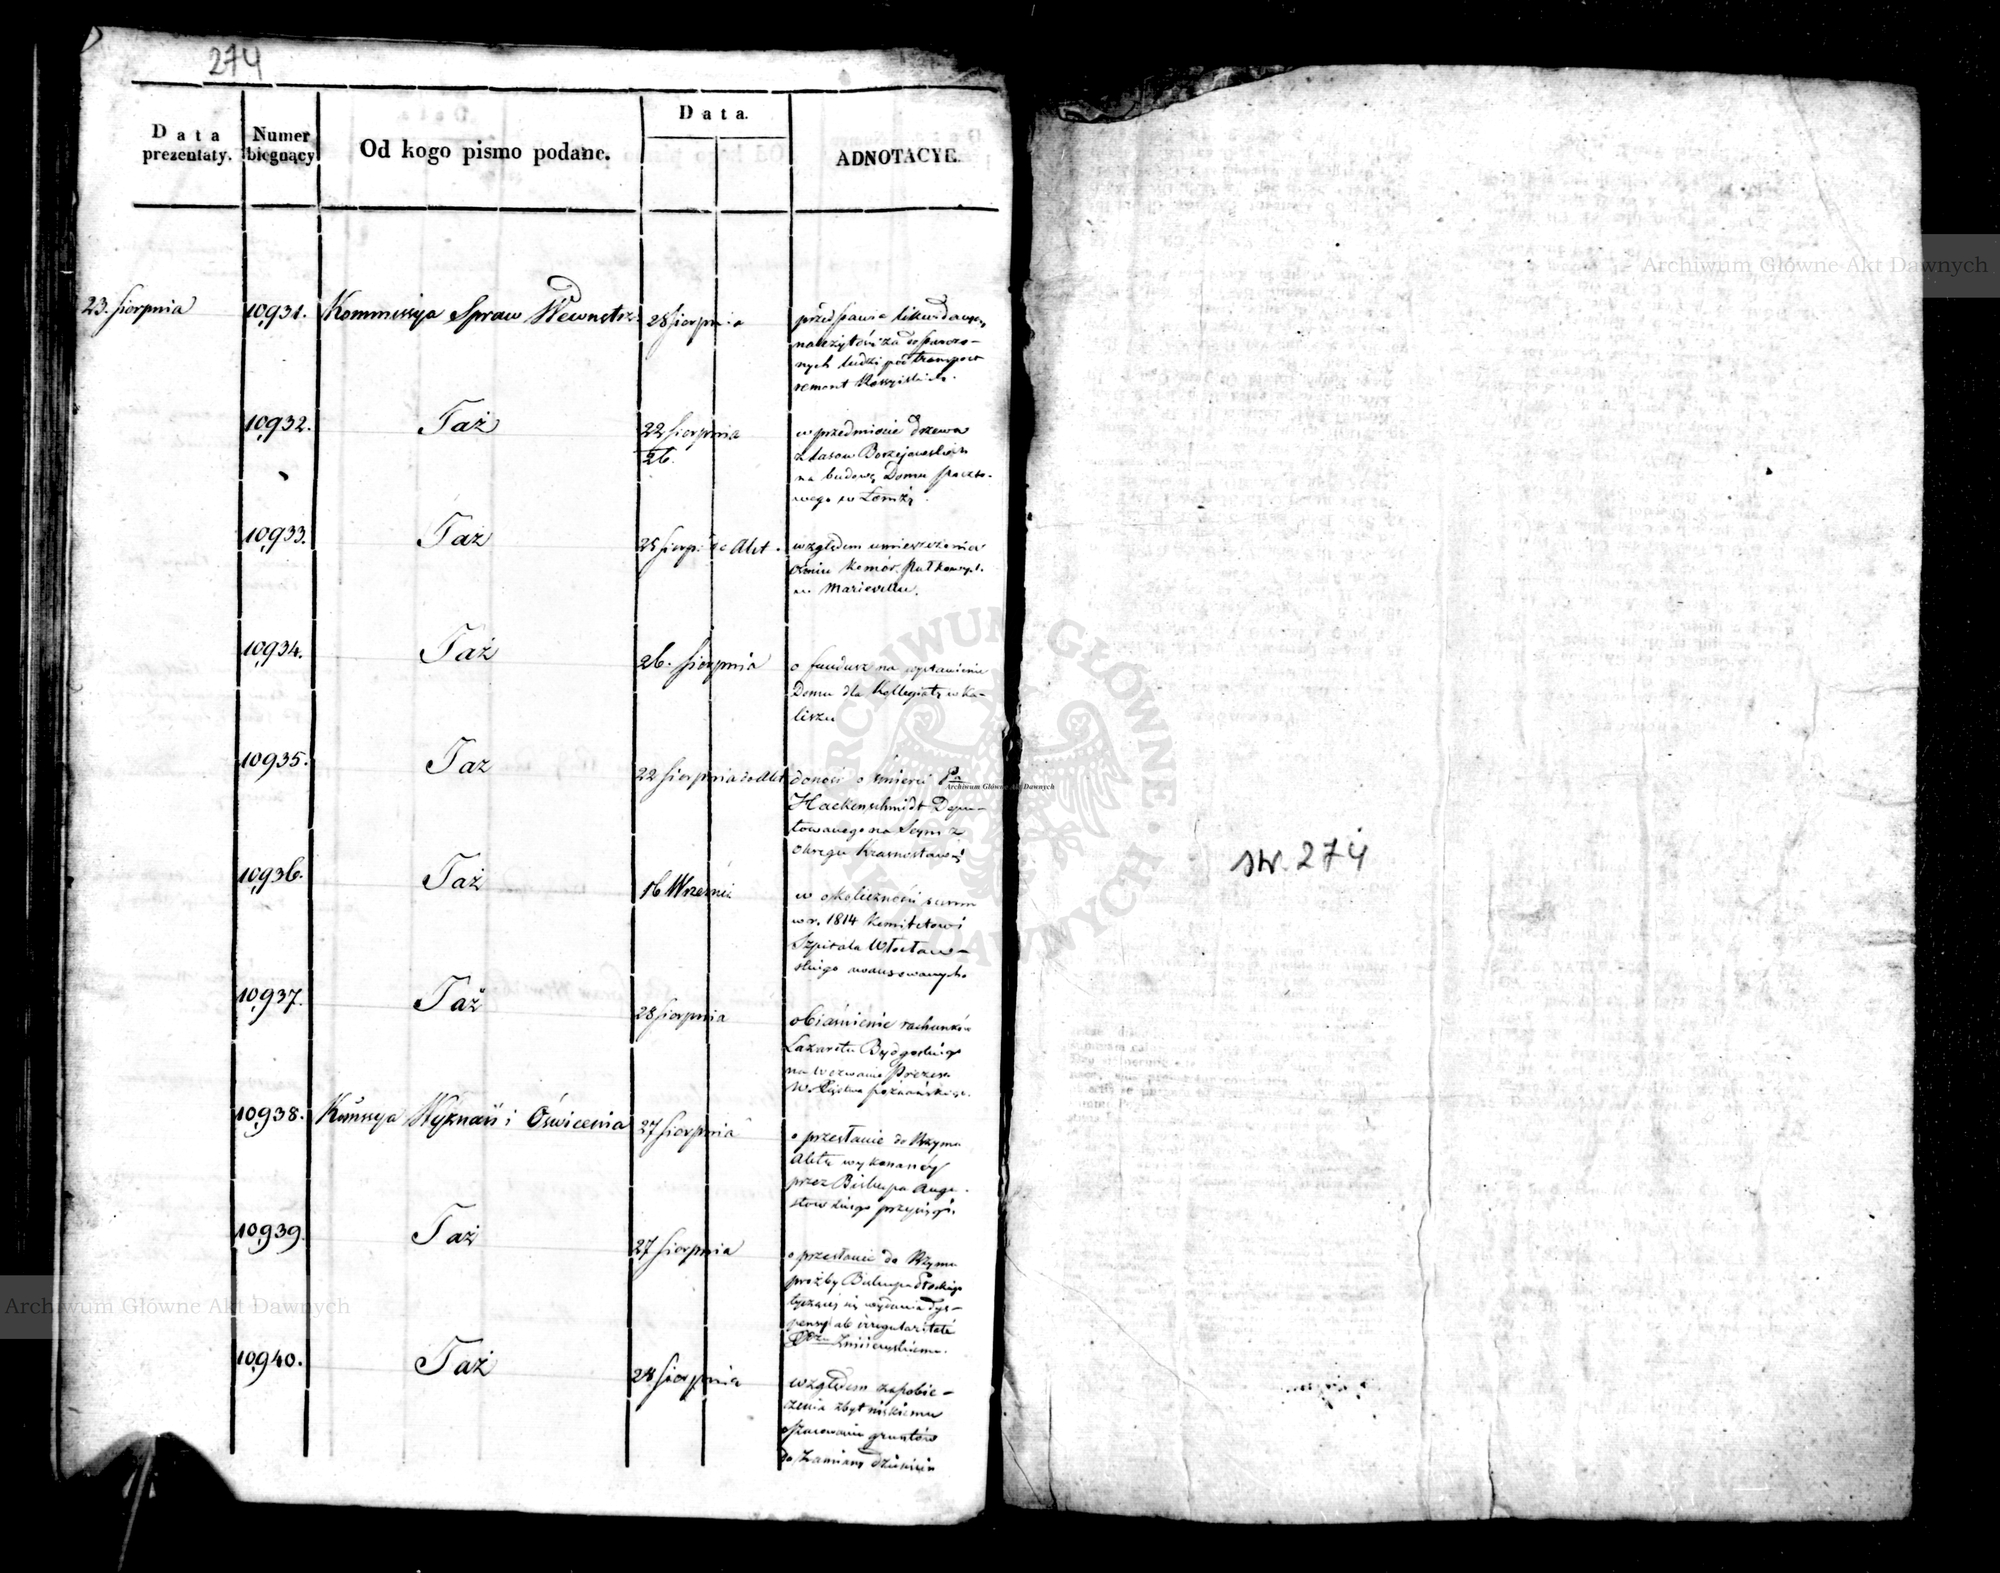 274
Data prezentaty.
Numer biegnący
Od kogo pismo podane.
Data.
ADNOTACYE.
23. Sierpnia
10,931.
Kommissya Spraw Wewnętrz:
28 Sierpnia
przedstawia likwidacyą
należytości za dostarczo-
nych ludzi pod transport
remont Rossyiskich.
10,932.
Taż
22 Sierpnia
26.
w przedmiocie drzewa
z lasow
na budowę Domu poczto-
wego w Łomży.
10,933.
Taż
25 Sierp:
względem umieszczenia
w Marievillu.
10,934.
Taż
26. Sierpnia
o fundusz na wystawienie
Domu dla Kollegiaty w Ka-
liszu
10,935.
Taż
22 Sierpnia
donosi o śmierci Pa
Hackenschmidt Depu-
towanego na Seym z
Okręgu Krasnostaw:
10,936.
Taż
16 Wrześnie
w okoliczności summ
w r. 1814 Komitetowi
Szpitala Włocław-
skiego awansowanych
10,937.
Taż
28 Sierpnia
obiaśnienie rachunków
Lazaretu Bydgoskiego
na wezwanie Prezesa
W. Xięstwa Poznańskiego.
10,938.
Kommissya Wyznań i Oświcenia
27 Sierpnia
o przesłanie do Rzymu
Aktu wykonanéy
przez Biskupa Augu-
stowskiego przysięgi.
10,939.
Taż
27 Sierpnia
o przesłanie do Rzymu
prożby Biskupa Płockiego
tyczącéj się wydania dys-
pensy ab irregularitate
10,940.
Taż
28 Sierpnia
względem zapobie-
żenia zbyt niskiemu
szacowaniu gruntów
do zamiany
sw. 274
Archiwum Główne Akt Dawnych
Archiwum Główne Akt Dawnych
Archiwum Główne Akt Dawnych
ARCHIWUM GŁÓWNE AKT DAWNYCH